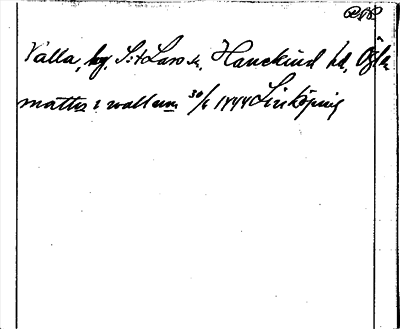 Valla, by, S:t Lars sn, Hanekind hd, Ögl.
mattis i wallum 30/6 1444 Linköping